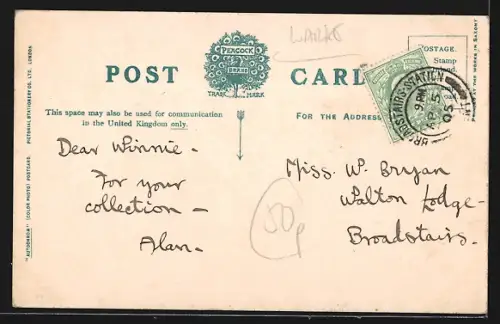 LARKS
PEACOCK
BRAND
TRADE MARK
POST CARD
POSTAGE.
Stamp
This space may also be used for communication
in the United Kingdom only.
FOR THE ADDRESS
BROADSTAIRS STATION
AP 5
05
Dear Winnie -
For your
collection -
Alan.
Miss. W. Bryan
Walton Lodge -
Broadstairs.
50p
"AUTOCHROM" (COLOR PHOTO) POSTCARD. PICTORIAL STATIONERY CO. LTD. LONDON